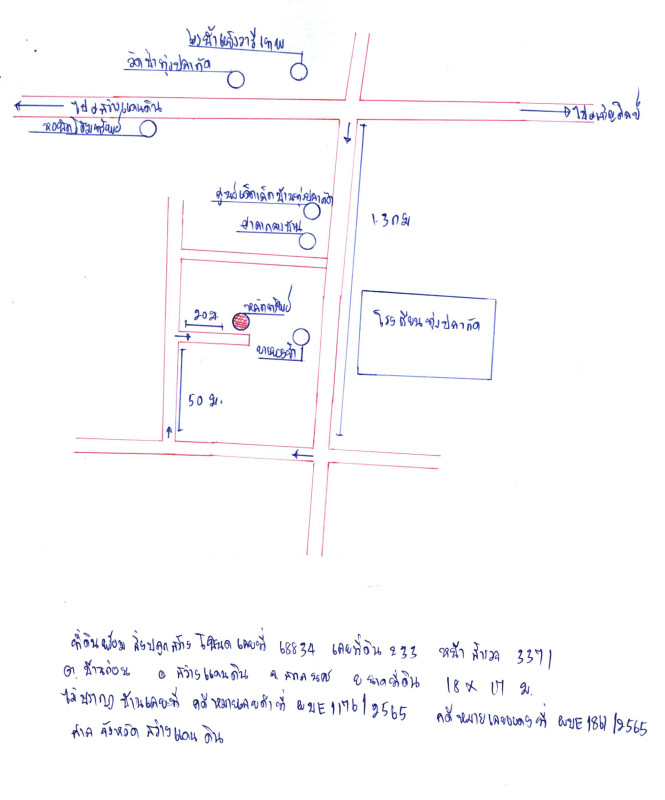 โรงน้ำแข็งวารีเทพ
วัดป่าทุ่งปลากัด
ไป สว่างแดนดิน
ไป
หอพัก
ศูนย์เด็กเล็กบ้านทุ่งปลากัด
ศาลากลางบ้าน
1.3 กม
หลักทรัพย์
20 ม.
โรงเรียนทุ่งปลากัด
50 ม.
ที่ดินพร้อม สิ่งปลูกสร้าง โฉนด เลขที่ 68834 เลขที่ดิน 233 หน้าสำรวจ 3371
ต. บ้านถ่อน อ สว่างแดนดิน จ สกลนคร ขนาดที่ดิน 18 x 17 ม.
ไม่ปรากฏ บ้านเลขที่ คดีหมายเลขดำที่ ผบE 1176/2565 คดีหมายเลขแดงที่ ผบE 1861/2565
ศาล จังหวัด สว่างแดนดิน